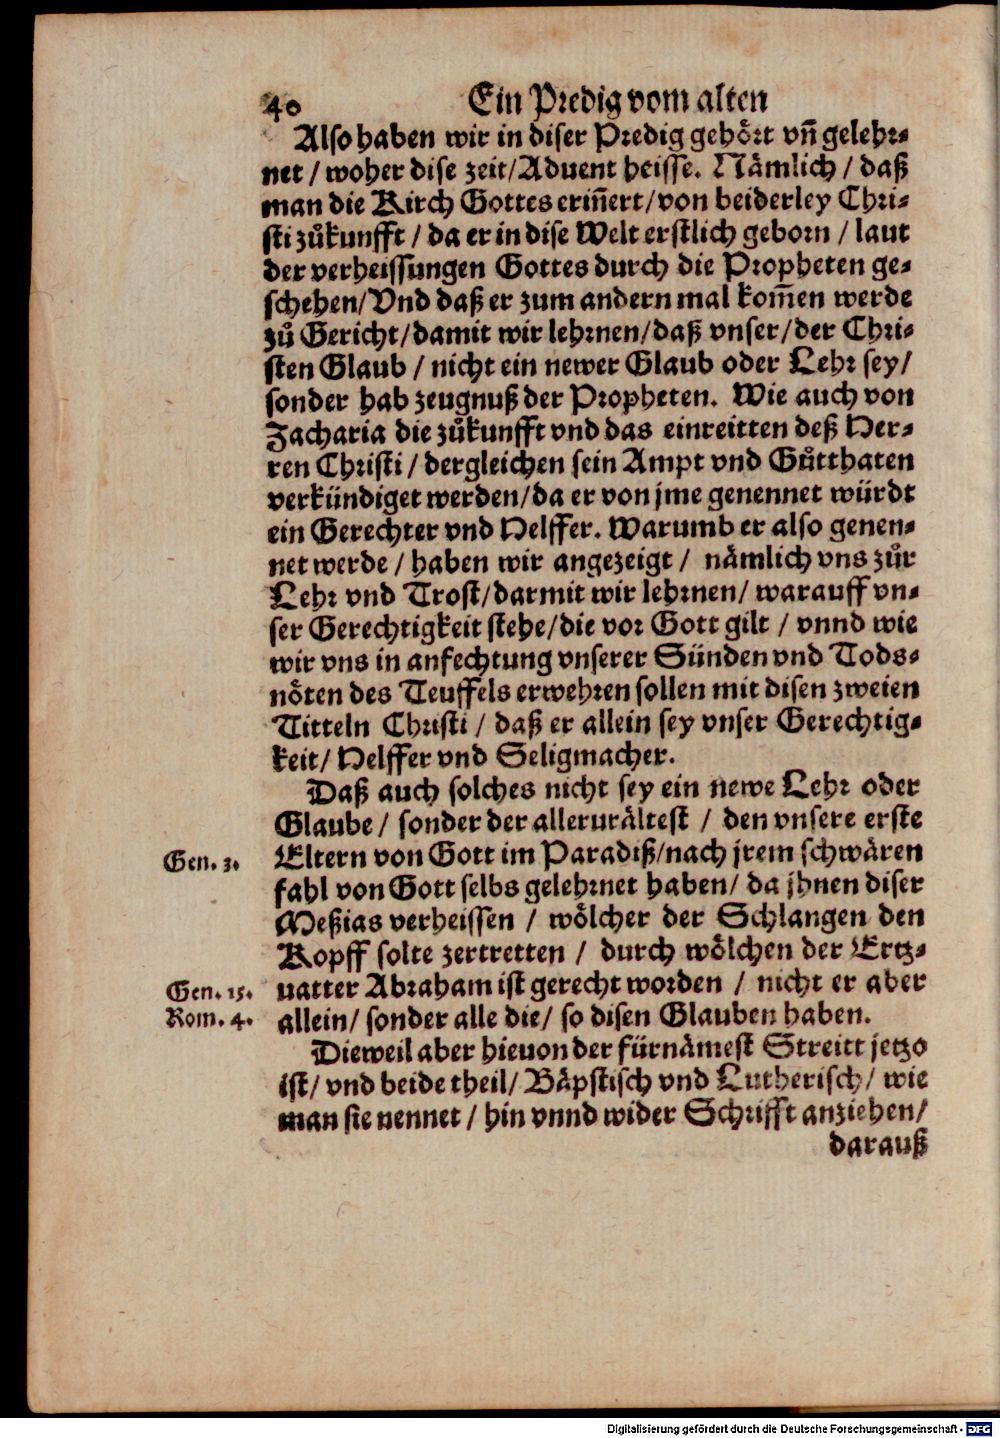 40 Ein Predig vom alten
Also haben wir in diser Predig gehört vn̄ gelehr⸗
net / woher dise zeit/Aduent heisse. Nämlich / daß
man die Kirch Gottes erin̄ert/von beiderley Chri⸗
sti zůkunfft / da er in dise Welt erstlich geborn / laut
der verheissungen Gottes durch die Propheten ge⸗
schehen/Vnd daß er zum andern mal kom̄en werde
zů Gericht/damit wir lehrnen/daß vnser/der Chri⸗
sten Glaub / nicht ein newer Glaub oder Lehr sey/
sonder hab zeugnuß der Propheten. Wie auch von
Zacharia die zůkunfft vnd das einreitten deß Her⸗
ren Christi / dergleichen sein Ampt vnd Gůtthaten
verkündiget werden/da er von jme genennet würdt
ein Gerechter vnd Helffer. Warumb er also genen⸗
net werde / haben wir angezeigt / nämlich vns zůr
Lehr vnd Trost/darmit wir lehrnen/ warauff vn⸗
ser Gerechtigkeit stehe/die vor Gott gilt / vnnd wie
wir vns in anfechtung vnserer Sünden vnd Tods⸗
nöten des Teuffels erwehren sollen mit disen zweien
Titteln Christi / daß er allein sey vnser Gerechtig⸗
keit/ Helffer vnd Seligmacher.
Daß auch solches nicht sey ein newe Lehr oder
Glaube / sonder der allerurältest / den vnsere erste
Gen. 3. Eltern von Gott im Paradiß/nach jrem schwären
fahl von Gott selbs gelehrnet haben/ da jhnen diser
Meßias verheissen / wölcher der Schlangen den
Kopff solte zertretten / durch wölchen der Ertz⸗
Gen. 15. uatter Abraham ist gerecht worden / nicht er aber
Rom. 4. allein/ sonder alle die/ so disen Glauben haben.
Dieweil aber hieuon der fürnämest Streitt jetzo
ist/ vnd beide theil/ Bäpstisch vnd Lutherisch/ wie
man sie nennet / hin vnnd wider Schrifft anziehen/
darauß
Digitalisierung gefördert durch die Deutsche Forschungsgemeinschaft - DFG